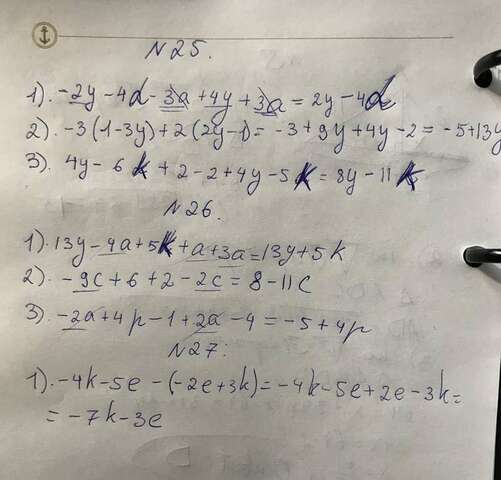 N25.
1). -2y - 4d - 3a + 4y + 3a = 2y - 4d
2). -3(1-3y)+2(2y-1) = -3+9y+4y-2 = -5+13y
3). 4y - 6k + 2 - 2 + 4y - 5k = 8y - 11k
N26.
1). 13y - 4a + 5k + a + 3a = 13y + 5k
2). -9c + 6 + 2 - 2c = 8 - 11c
3). -2a + 4p - 1 + 2a - 4 = -5 + 4p
N27:
1). -4k - 5e - (-2e + 3k) = -4k - 5e + 2e - 3k =
= -7k - 3e